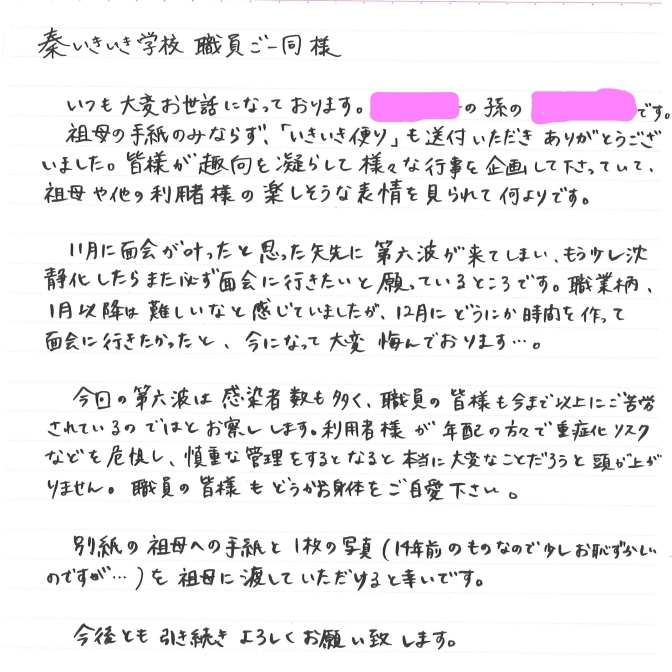 秦いきいき学校 職員ご一同様
いつも大変お世話になっております。の孫のです。
祖母の手紙のみならず、「いきいき便り」も送付いただきありがとうござ
いました。皆様が趣向を凝らして様々な行事を企画して下さっていて、
祖母や他の利用者様の楽しそうな表情を見られて何よりです。
11月に面会が叶ったと思った矢先に第六波が来てしまい、もう少し沈
静化したらまた必ず面会に行きたいと願っているところです。職業柄、
1月以降は難しいなと感じていましたが、12月にどうにか時間を作って
面会に行きたかったと、今になって大変悔んでおります…。
今回の第六波は感染者数も多く、職員の皆様も今まで以上にご苦労
されているのではとお察しします。利用者様が年配の方々で重症化リスク
などを危惧し、慎重な管理をするとなると本当に大変なことだろうと頭が上が
りません。職員の皆様もどうかお身体をご自愛下さい。
別紙の祖母への手紙と1枚の写真(14年前のものなので少しお恥ずかしい
のですが…)を祖母に渡していただけると幸いです。
今後とも引き続きよろしくお願い致します。